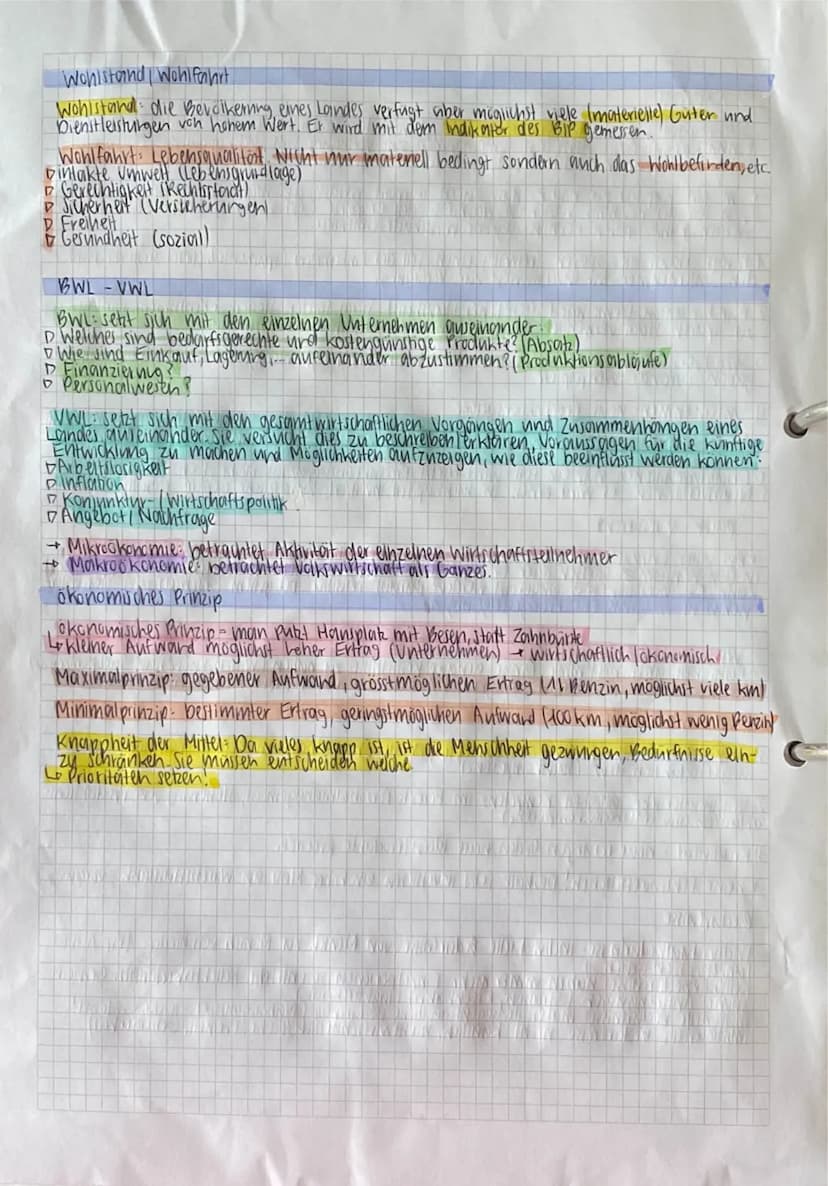 Wohlstand / Wohlfahrt
Wohlstand: die Bevölkerung eines Landes verfügt über möglichst viele (materielle) Güter und
Dienstleistungen von hohem Wert. Er wird mit dem Indikator des BIP gemessen.
Wohlfahrt: Lebensqualität. Nicht nur materiell bedingt sondern auch das Wohlbefinden, etc.
▷ intakte Umwelt (Lebensgrundlage)
▷ Gerechtigkeit (Rechtsstaat)
▷ Sicherheit (Versicherungen)
▷ Freiheit
▷ Gesundheit (sozial)
BWL - VWL
BWL: setzt sich mit den einzelnen Unternehmen auseinander:
▷ Welches sind bedarfsgerechte und kostengünstige Produkte? (Absatz)
▷ Wie sind Einkauf, Lagerung,... aufeinander abzustimmen? (Produktionsabläufe)
▷ Finanzierung?
▷ Personalwesen?
VWL: setzt sich mit den gesamtwirtschaftlichen Vorgängen und Zusammenhängen eines
Landes auseinander. Sie versucht dies zu beschreiben/erklären, Voraussagen für die künftige
Entwicklung zu machen und Möglichkeiten aufzuzeigen, wie diese beeinflusst werden können:
▷ Arbeitslosigkeit
▷ Inflation
▷ Konjunktur-/Wirtschaftspolitik
▷ Angebot / Nachfrage
→ Mikroökonomie: betrachtet Aktivität der einzelnen Wirtschaftsteilnehmer
→ Makroökonomie: betrachtet Volkswirtschaft als Ganzes.
ökonomisches Prinzip
ökonomisches Prinzip = man putzt Hausplatz mit Besen, statt Zahnbürste
↳ kleiner Aufwand möglichst hoher Ertrag (Unternehmen) → wirtschaftlich/ökonomisch
Maximalprinzip: gegebener Aufwand, grösstmöglichen Ertrag (1l Benzin, möglichst viele km)
Minimalprinzip: bestimmter Ertrag, geringstmöglichen Aufwand (100km, möglichst wenig Benzin)
Knappheit der Mittel: Da vieles knapp ist, ist die Menschheit gezwungen, Bedürfnisse ein-
zu schränken. Sie müssen entscheiden welche
↳ Prioritäten setzen!